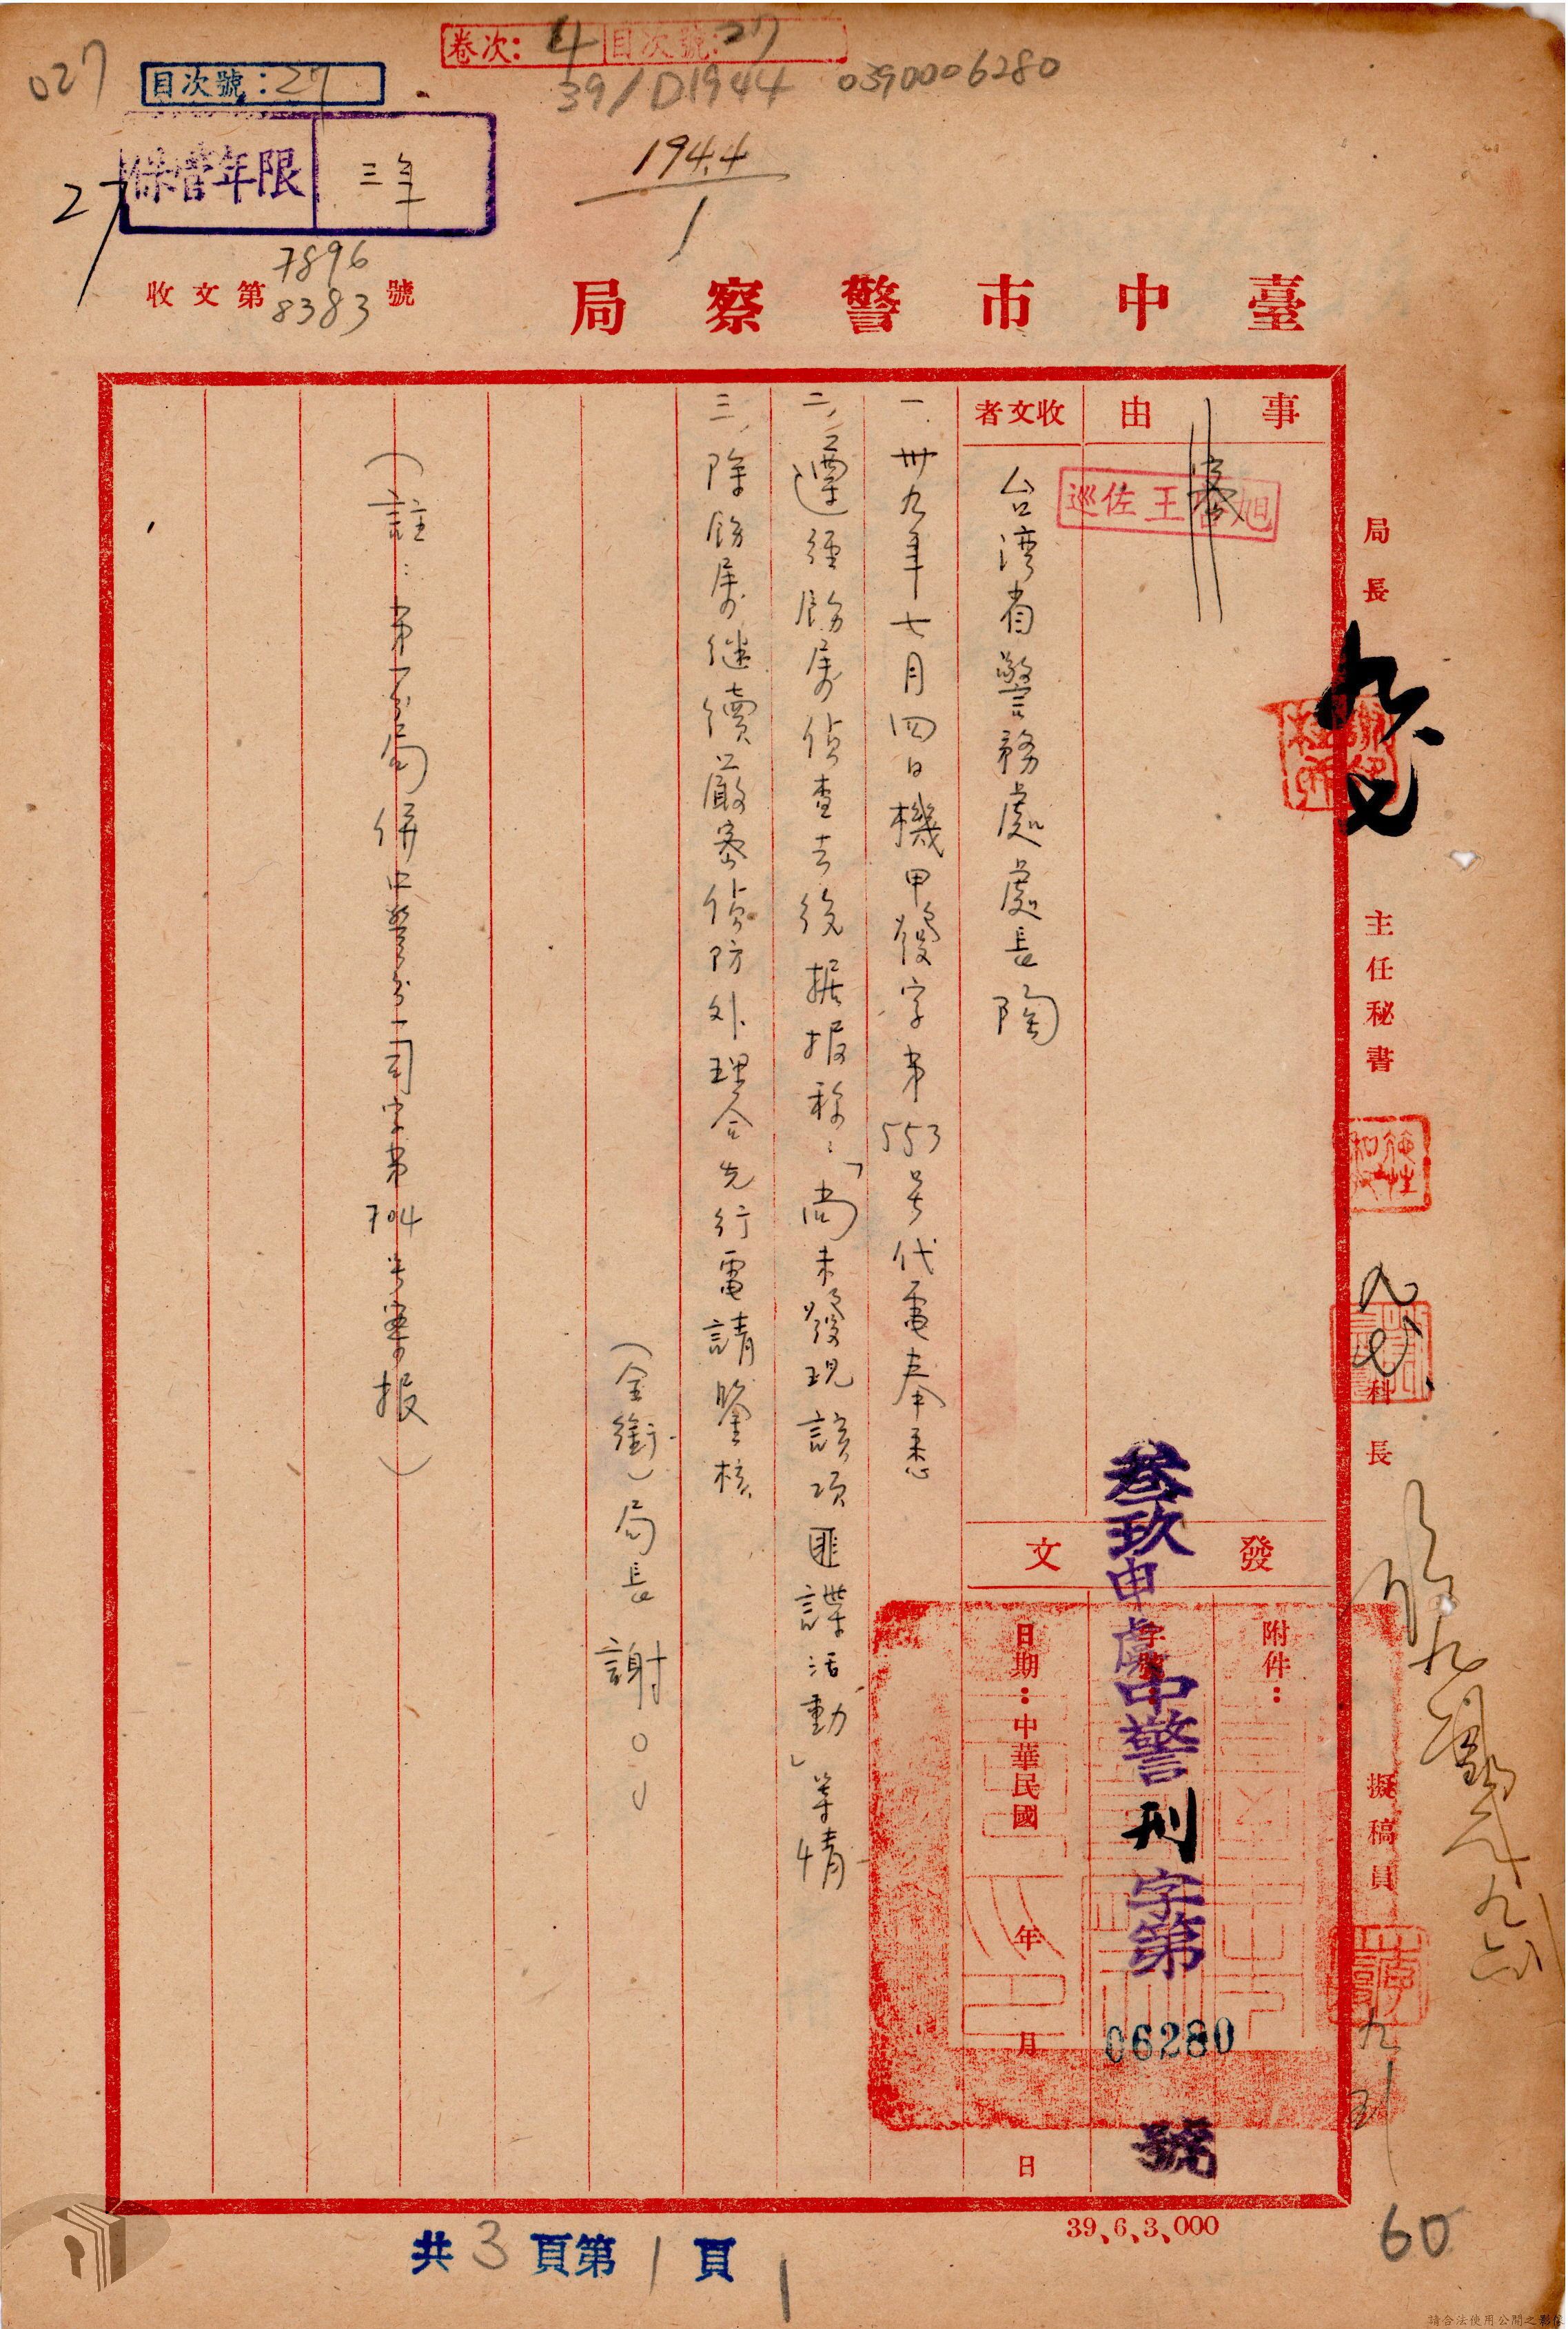 卷次：4 目次號：27
39/D1944 0390006280
027
目次號：27
保管年限 三年
27
1944
1
收文第 7896 8383 號
臺中市警察局
事由
收文者
台湾省警務處處長陶
巡佐王
一、卅九年七月四日機甲發字第553号代電奉悉
二、遵經飭屬偵查去後据报称：「尚未發現該項匪諜活動」等情
三、除飭屬继續嚴密偵防外理合先行電請鑒核
（全銜）局長 謝○○
（註：第一分局併中警分一司字第704号案报）
發文
附件：
叁玖申虞中警刑字第06280號
日期：中華民國 年 月 日
局長
主任秘書
科長
擬稿員
39、6、3、000
60
共3頁第1頁
1
請合法使用公開之影像